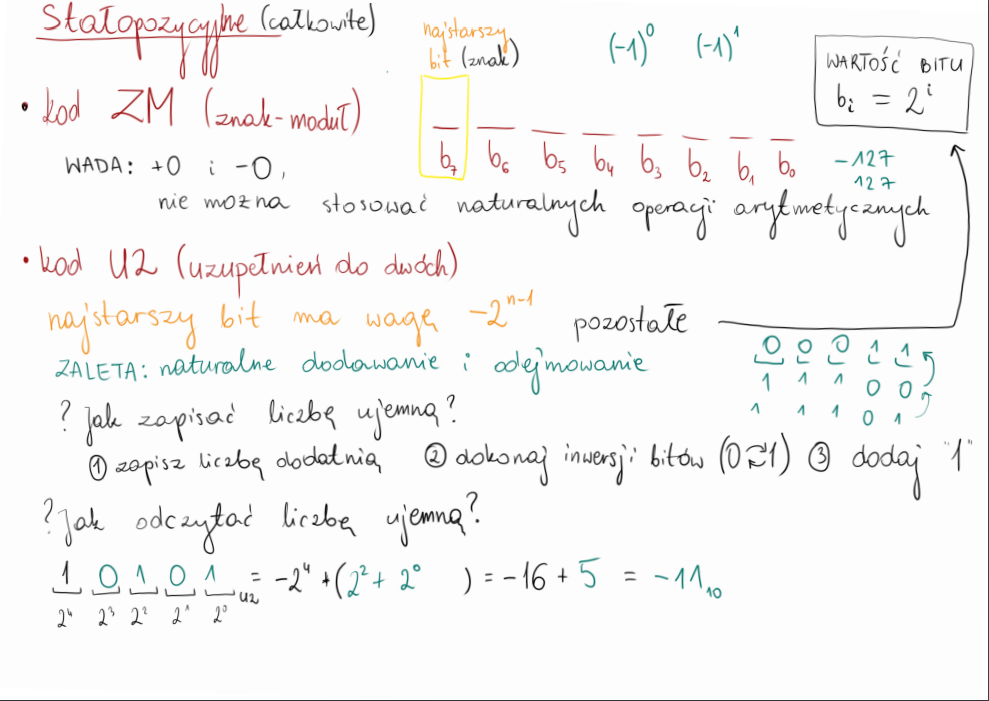 Stałopozycyjne (całkowite)
najstarszy
bit (znak)
(-1)⁰ (-1)¹
WARTOŚĆ BITU
bᵢ = 2ⁱ
• kod ZM (znak-moduł)
b₇ b₆ b₅ b₄ b₃ b₂ b₁ b₀
-127
127
WADA: +0 i -0,
nie można stosować naturalnych operacji arytmetycznych
• kod U2 (uzupełnień do dwóch)
najstarszy bit ma wagę -2ⁿ⁻¹ pozostałe
ZALETA: naturalne dodawanie i odejmowanie
0 0 0 1 1
1 1 1 0 0
1 1 1 0 1
? Jak zapisać liczbę ujemną?
① zapisz liczbę dodatnią ② dokonaj inwersji bitów (0⇄1) ③ dodaj "1"
? Jak odczytać liczbę ujemną?
1 0 1 0 1 U2 = -2⁴ + (2² + 2⁰ ) = -16 + 5 = -11₁₀
2⁴ 2³ 2² 2¹ 2⁰